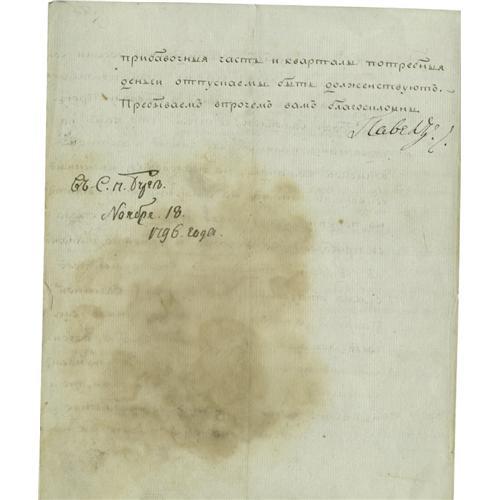 прибавочныя части и кварталы потребныя
деньги отпускаемы быть долженствуютъ.
Пребываемъ впрочемъ вамъ благосклонны.
Павелъ
Въ С. п. Бурге.
Ноября. 18.
1796. года.